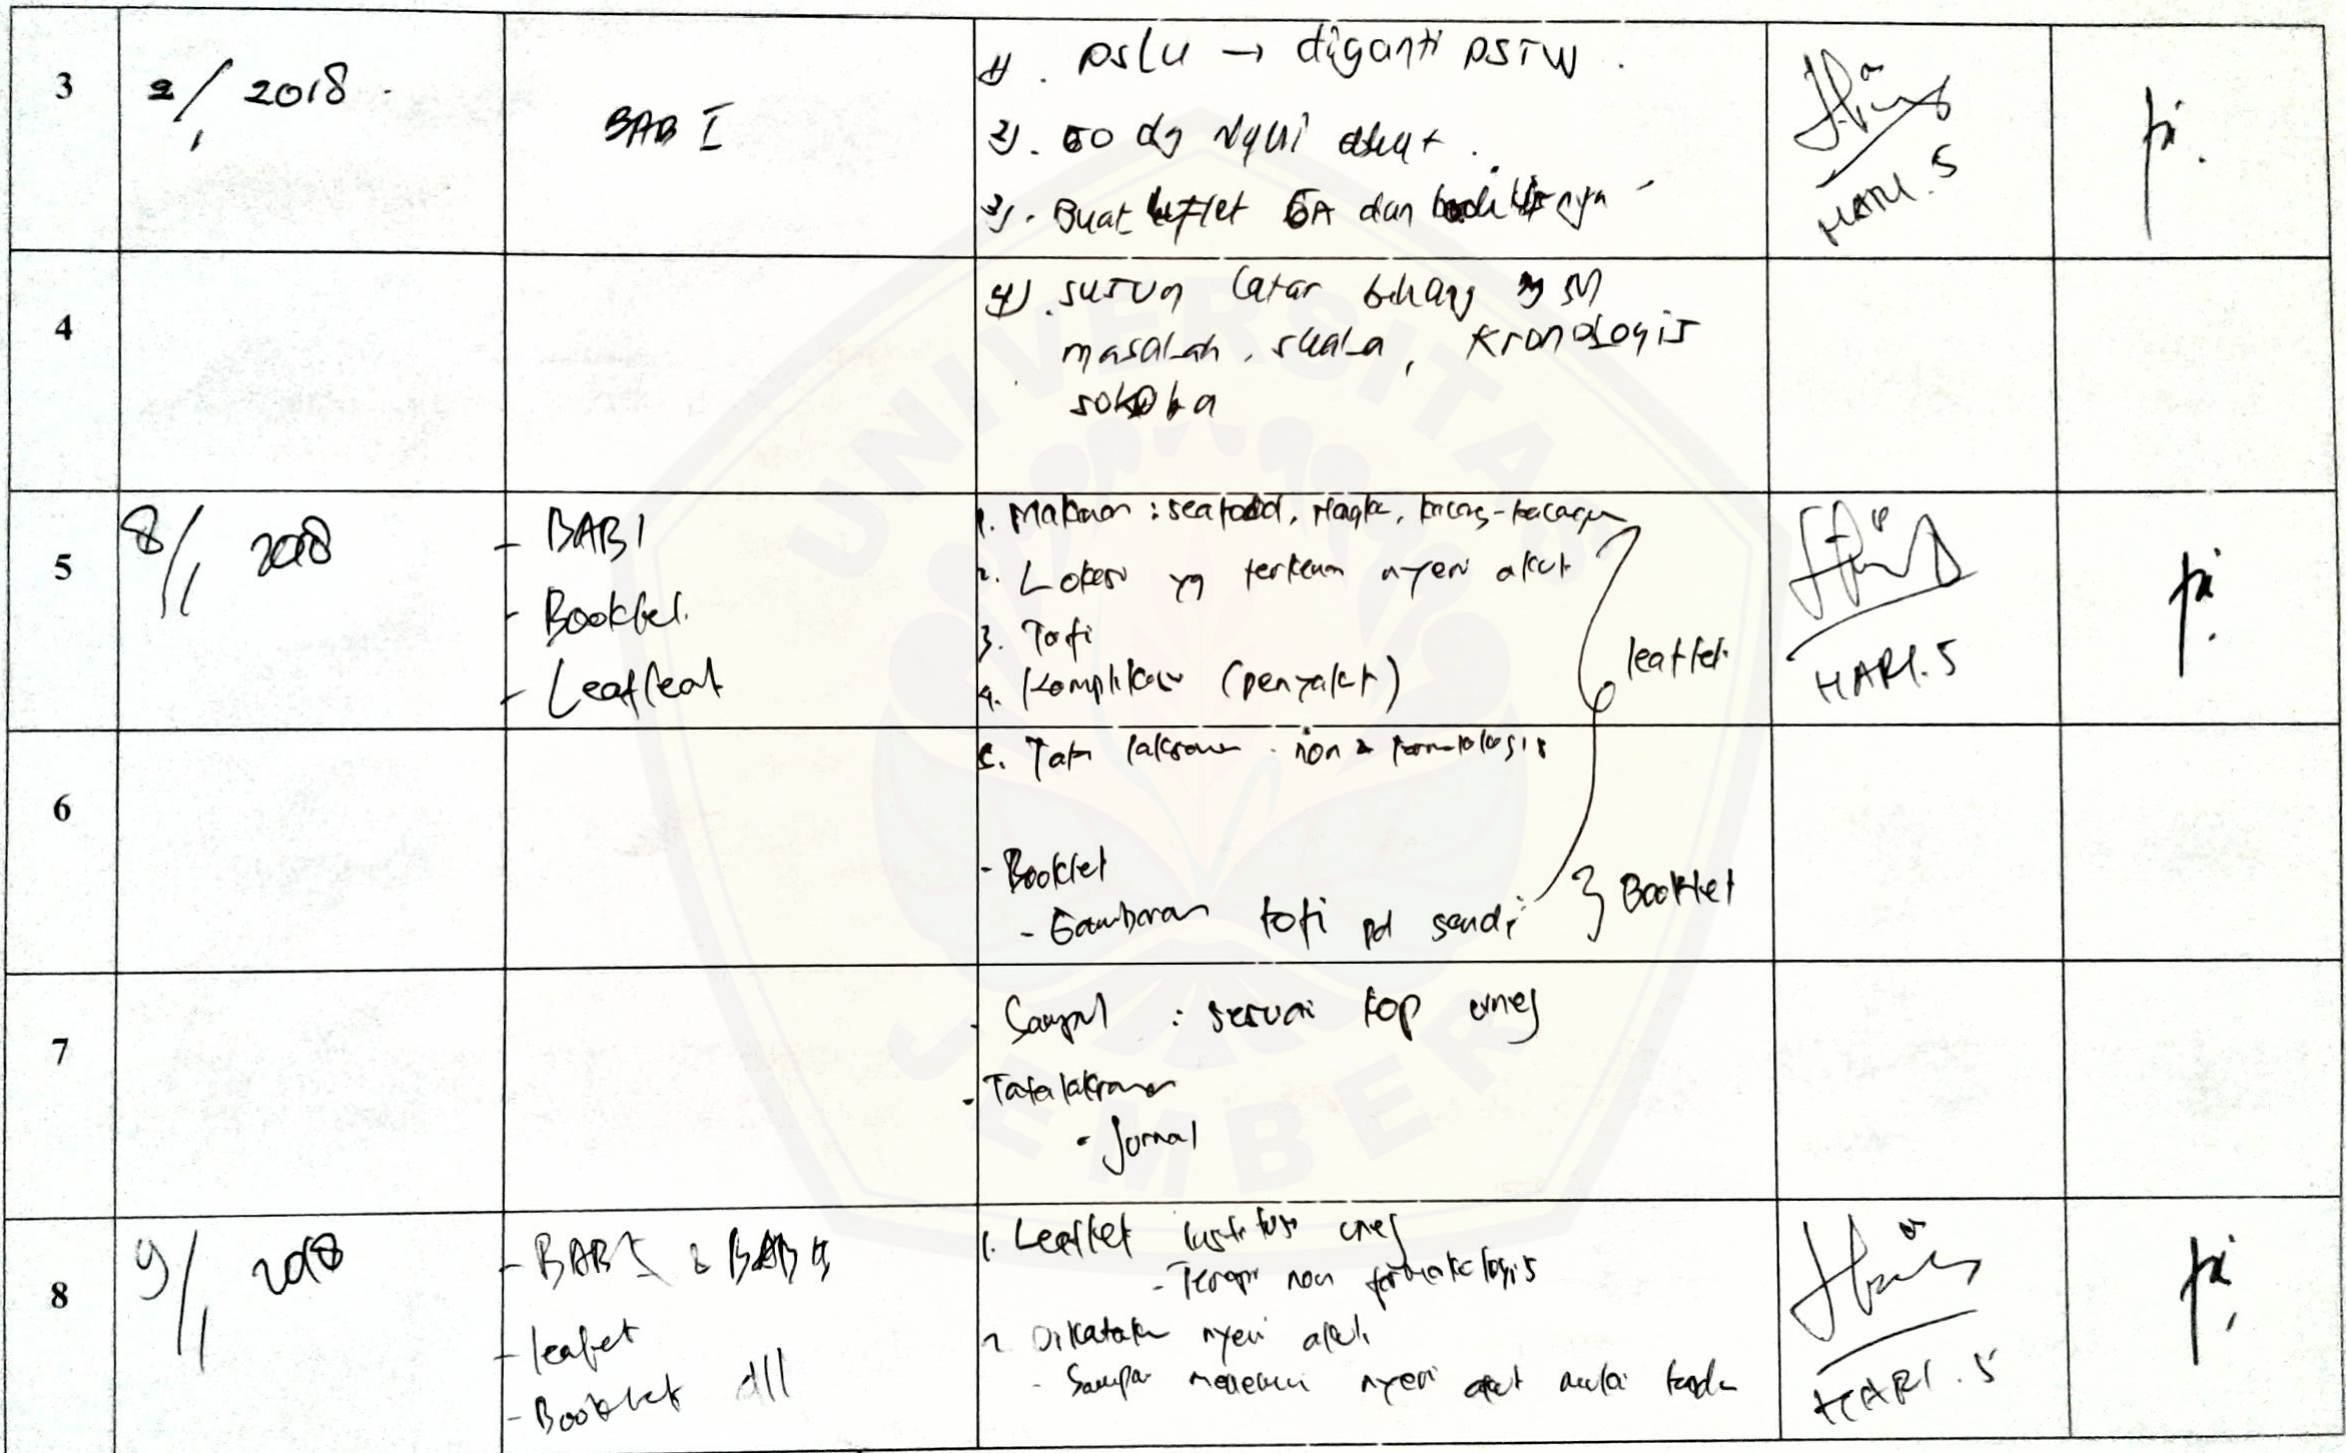 3
2/1 2018
BAB I
1). PSLU → diganti PSTW.
2). GO dg nyeri akut.
3). Buat leflet GA dan
HARI.S
4
4). susun latar blkang
masalah, skala, kronologis
5
8/1 2018
- BAB 1
- Booklet
- Leafleat
1. Makanan : seafood, kacang-kacangan
2. Lokasi yg terkena nyeri akut
3. Tofi
4. Komplikasi (penyakit)
leaflet
HARI.S
6
5. Tata laksana non farmakologis
- Booklet
- Gambaran tofi pd sendi
} Booklet
7
- Sampul : sesuai kop unej
- Tatalaksana
- Jurnal
8
9/1 2018
- BAB & BAB 4
- leaflet
- Booklet dll
1. Leaflet institusi unej
- Terapi non farmakologis
2. Dikatakan nyeri akut
- Sampai nyeri akut
HARI.S
UNIVERSITAS
JEMBER